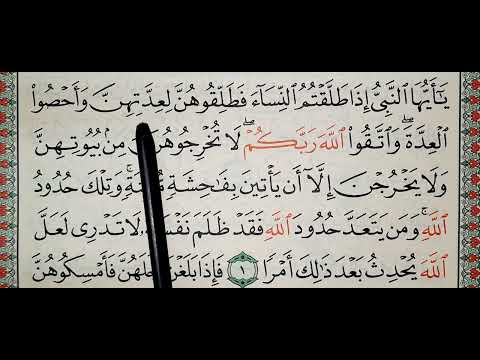 يَـٰٓأَيُّهَا ٱلنَّبِىُّ إِذَا طَلَّقْتُمُ ٱلنِّسَآءَ فَطَلِّقُوهُنَّ لِعِدَّتِهِنَّ وَأَحْصُوا۟
ٱلْعِدَّةَ ۖ وَٱتَّقُوا۟ ٱللَّهَ رَبَّكُمْ ۖ لَا تُخْرِجُوهُنَّ مِنۢ بُيُوتِهِنَّ
وَلَا يَخْرُجْنَ إِلَّآ أَن يَأْتِينَ بِفَـٰحِشَةٍ ۚ وَتِلْكَ حُدُودُ
ٱللَّهِ ۚ وَمَن يَتَعَدَّ حُدُودَ ٱللَّهِ فَقَدْ ظَلَمَ لَا تَدْرِى لَعَلَّ
ٱللَّهَ يُحْدِثُ بَعْدَ ذَٰلِكَ أَمْرًا ١ فَإِذَا بَلَغْنَ فَأَمْسِكُوهُنَّ